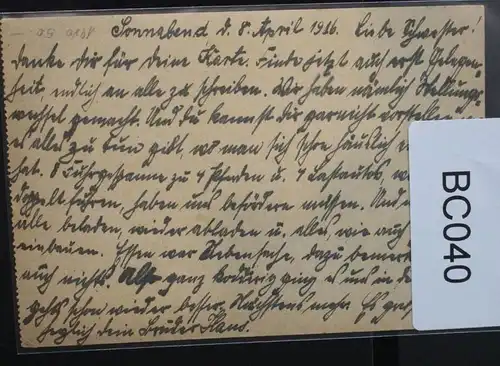 Sonnabend d. 8. April 1916. Liebe Schwester!
Danke dir für deine Karte. Finde jetzt auch erst Gelegen-
heit, endlich an alle zu schreiben. Wir haben nämlich Stellungs-
wechsel gemacht. Und du kannst dir garnicht vorstellen
es alles zu tun gibt, wo man sich schon häuslich
hat. 8 Fuhrgespanne zu 4 Pferden u. 4 Lastautos,
doppelt fuhren, haben uns befördern müssen. Und
alle beladen, wieder abladen u. alles, wie auch
einbauen. Essen war Nebensache, dazu
auch nichts. Also ganz ging es uns in
gehts schon wieder besser. Nächstens mehr. Es
herzlich dein Bruder Hans.
BC040